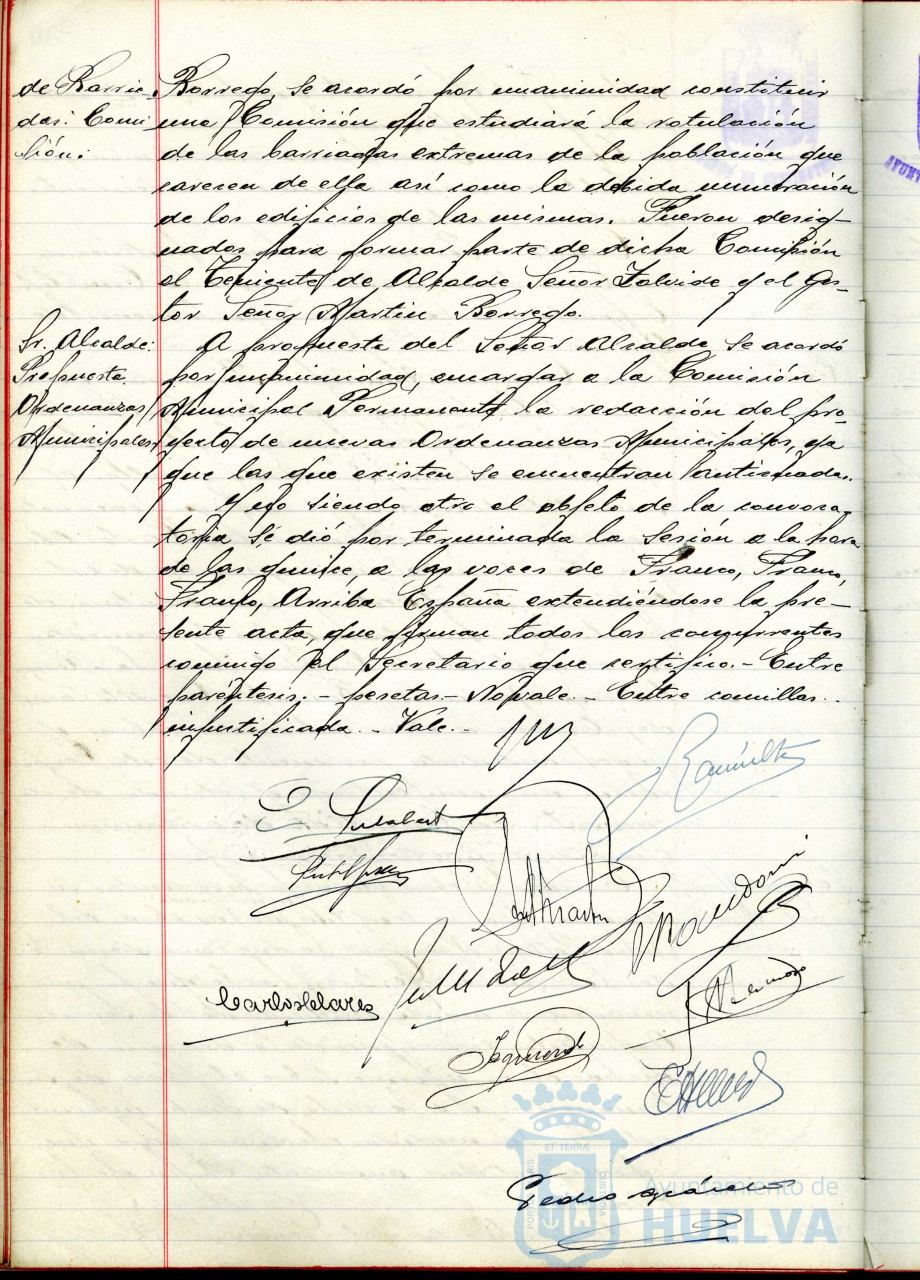 de Barria-
das: Comi
sión:
Borrego, se acordó por unanimidad constituir
una Comisión que estudiará la rotulación
de las barriadas extremas de la población que
carecen de ella así como la debida numeración
de los edificios de las mismas. Fueron desig-
nados para formar parte de dicha Comisión
el Teniente de Alcalde Señor y el Ges-
tor Señor Martin Borrego.
Sr. Alcalde:
Propuesta
Ordenanzas
Municipales
A propuesta del Señor Alcalde se acordó
por unanimidad, encargar a la Comisión
Municipal Permanente la redacción del pro-
yecto de nuevas Ordenanzas Municipales, ya
que las que existen se encuentran anticuadas.
Y no siendo otro el objeto de la convoca-
toria se dió por terminada la sesión a la hora
de las quince, a las voces de Franco, Franco,
Franco, Arriba España extendiéndose la pre-
sente acta, que firman todos los concurrentes
conmigo el Secretario que certifico.- Entre
paréntesis.- pesetas.- No vale.- Entre comillas.-
injustificada.- Vale.-
Izquierdo
ET TERRÆ
Pedro
Ayuntamiento de
HUELVA